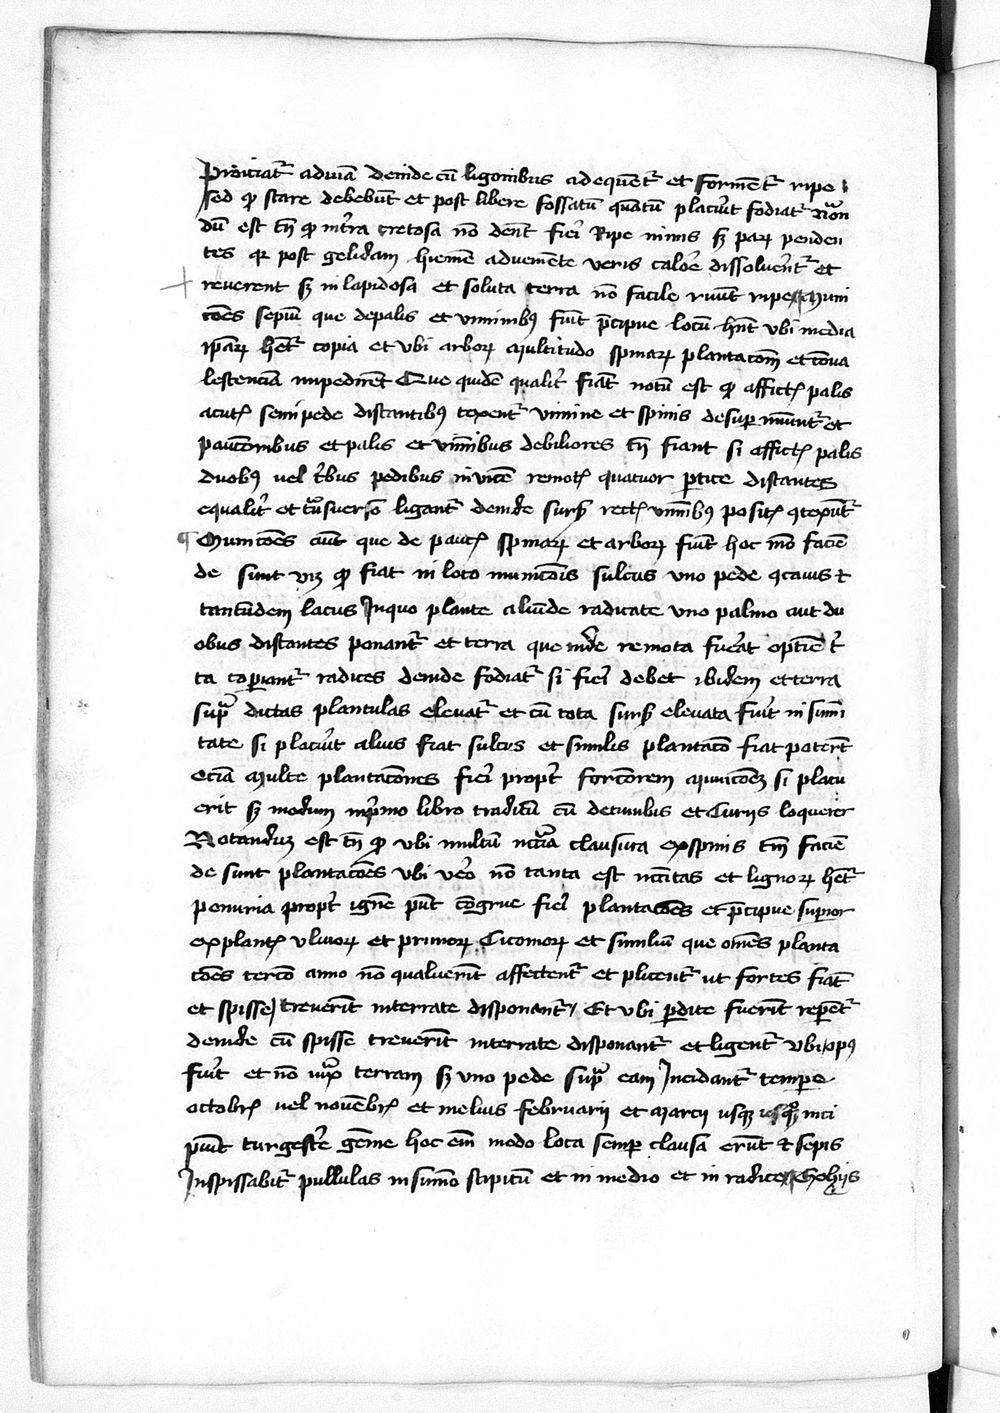 Proiciatr̄ ad viā deinde cū ligonibus adequent̄ et forment̄ ripe
sed ꝙ stare debebūt et post libere fossatū quātū placuīt fodiat̄
dū est tn̄ ꝙ in terra cretosa nō dent̄ fieri Ripe nimis sꝫ parꝫ penden
tes qr̄ post gelidam hiemē adveniente veris caloē dissolvent̄ et
reverent sꝫ in lapidosa et soluta terra nō facile ruūt ripe Muni
cōes sepiū que de palis et viminibꝯ fiūt p̄cipue locū hn̄t ubi media
ipaꝝ het̄ copia et ubi arboꝝ multitudo spinaꝝ plantacom̄ et cōva
lescenciā impedirēt Que quidē qualit̄ fiāt notū est ꝙ affictꝭ palis
acutꝭ semipede distantibꝯ texent̄ vimine et spinis desuper muniunt̄ et
pauconibus et palis et viminibus debiliores tn̄ fiant si affictꝭ palis
duobꝯ vel t̄bus pedibus invicē remotꝭ quatuor ꝑtice distantes
equalit̄ et trāsverso ligant̄ deinde sursꝫ rectꝭ viminibꝯ positꝭ ꝯtexūt̄
¶ Municōes aūt que de plantꝭ spinaꝝ et arboꝝ fiūt hoc mō faciē
de sunt viꝫ ꝙ fiat in loco municōis sulcus uno pede ꝯcavus et
tantūdem latus In quo plante aliūde radicate uno palmo aut du
obus distantes ponant̄ et terra que inde remota fuerat optīe t̄
ta coperiant̄ radices deinde fodiat̄ si fieri debet ibidem et terra
supra dictas plantulas elevat̄ et cū tota sursꝫ elevata fuīt in sum̄i
tate si placuīt alius fiat sulcus et similis plantaco fiat poterit
eciā multe plantacōnes fieri propt̄ forciorem municōeꝫ si placu
erit sꝫ modum in pimo libro traditū cū de tumbis et Curijs loquerer
Notanduꝫ est tn̄ ꝙ ubi multū nccīa clausura ex spinis tm̄ faciē
de sunt plantacōes ubi vero nō tanta est nccītas et lignoꝝ het̄
penuria propt̄ ignē pn̄t cōgrue fieri plantacōes et p̄cipue superior
ex plantꝭ ulmoꝝ et prunoꝝ Citomoꝝ et similiū que om̄es planta
cōes tercio anno nō qualuerīt affectent̄ et plicent̄ ut fortes fiāt
et spisse creverīt interrate disponant̄ Et ubi ꝑdite fuerīt repent̄
deinde cū spisse creverīt interrate disponant̄ et ligent̄ ubi opꝯ
fuīt et nō iuxª terram sꝫ uno pede supra eam Incidant̄ tempe
octobrꝭ vel novēbrꝭ et melius februarij et marcij usqꝫ quoqꝫ inci
piūt turgescere gēme hoc em̄ modo loca semper clausa erūt et sepis
Inspissabit̄ pullulas in sum̄o stipitū et in medio et in radice